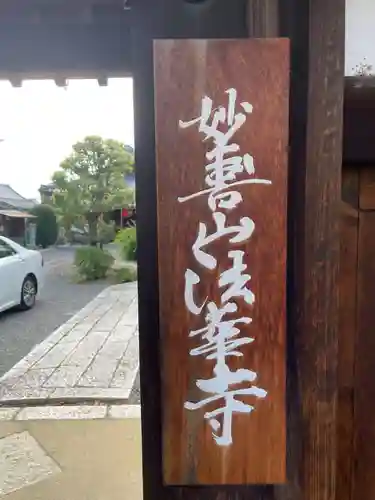 妙善山法華寺